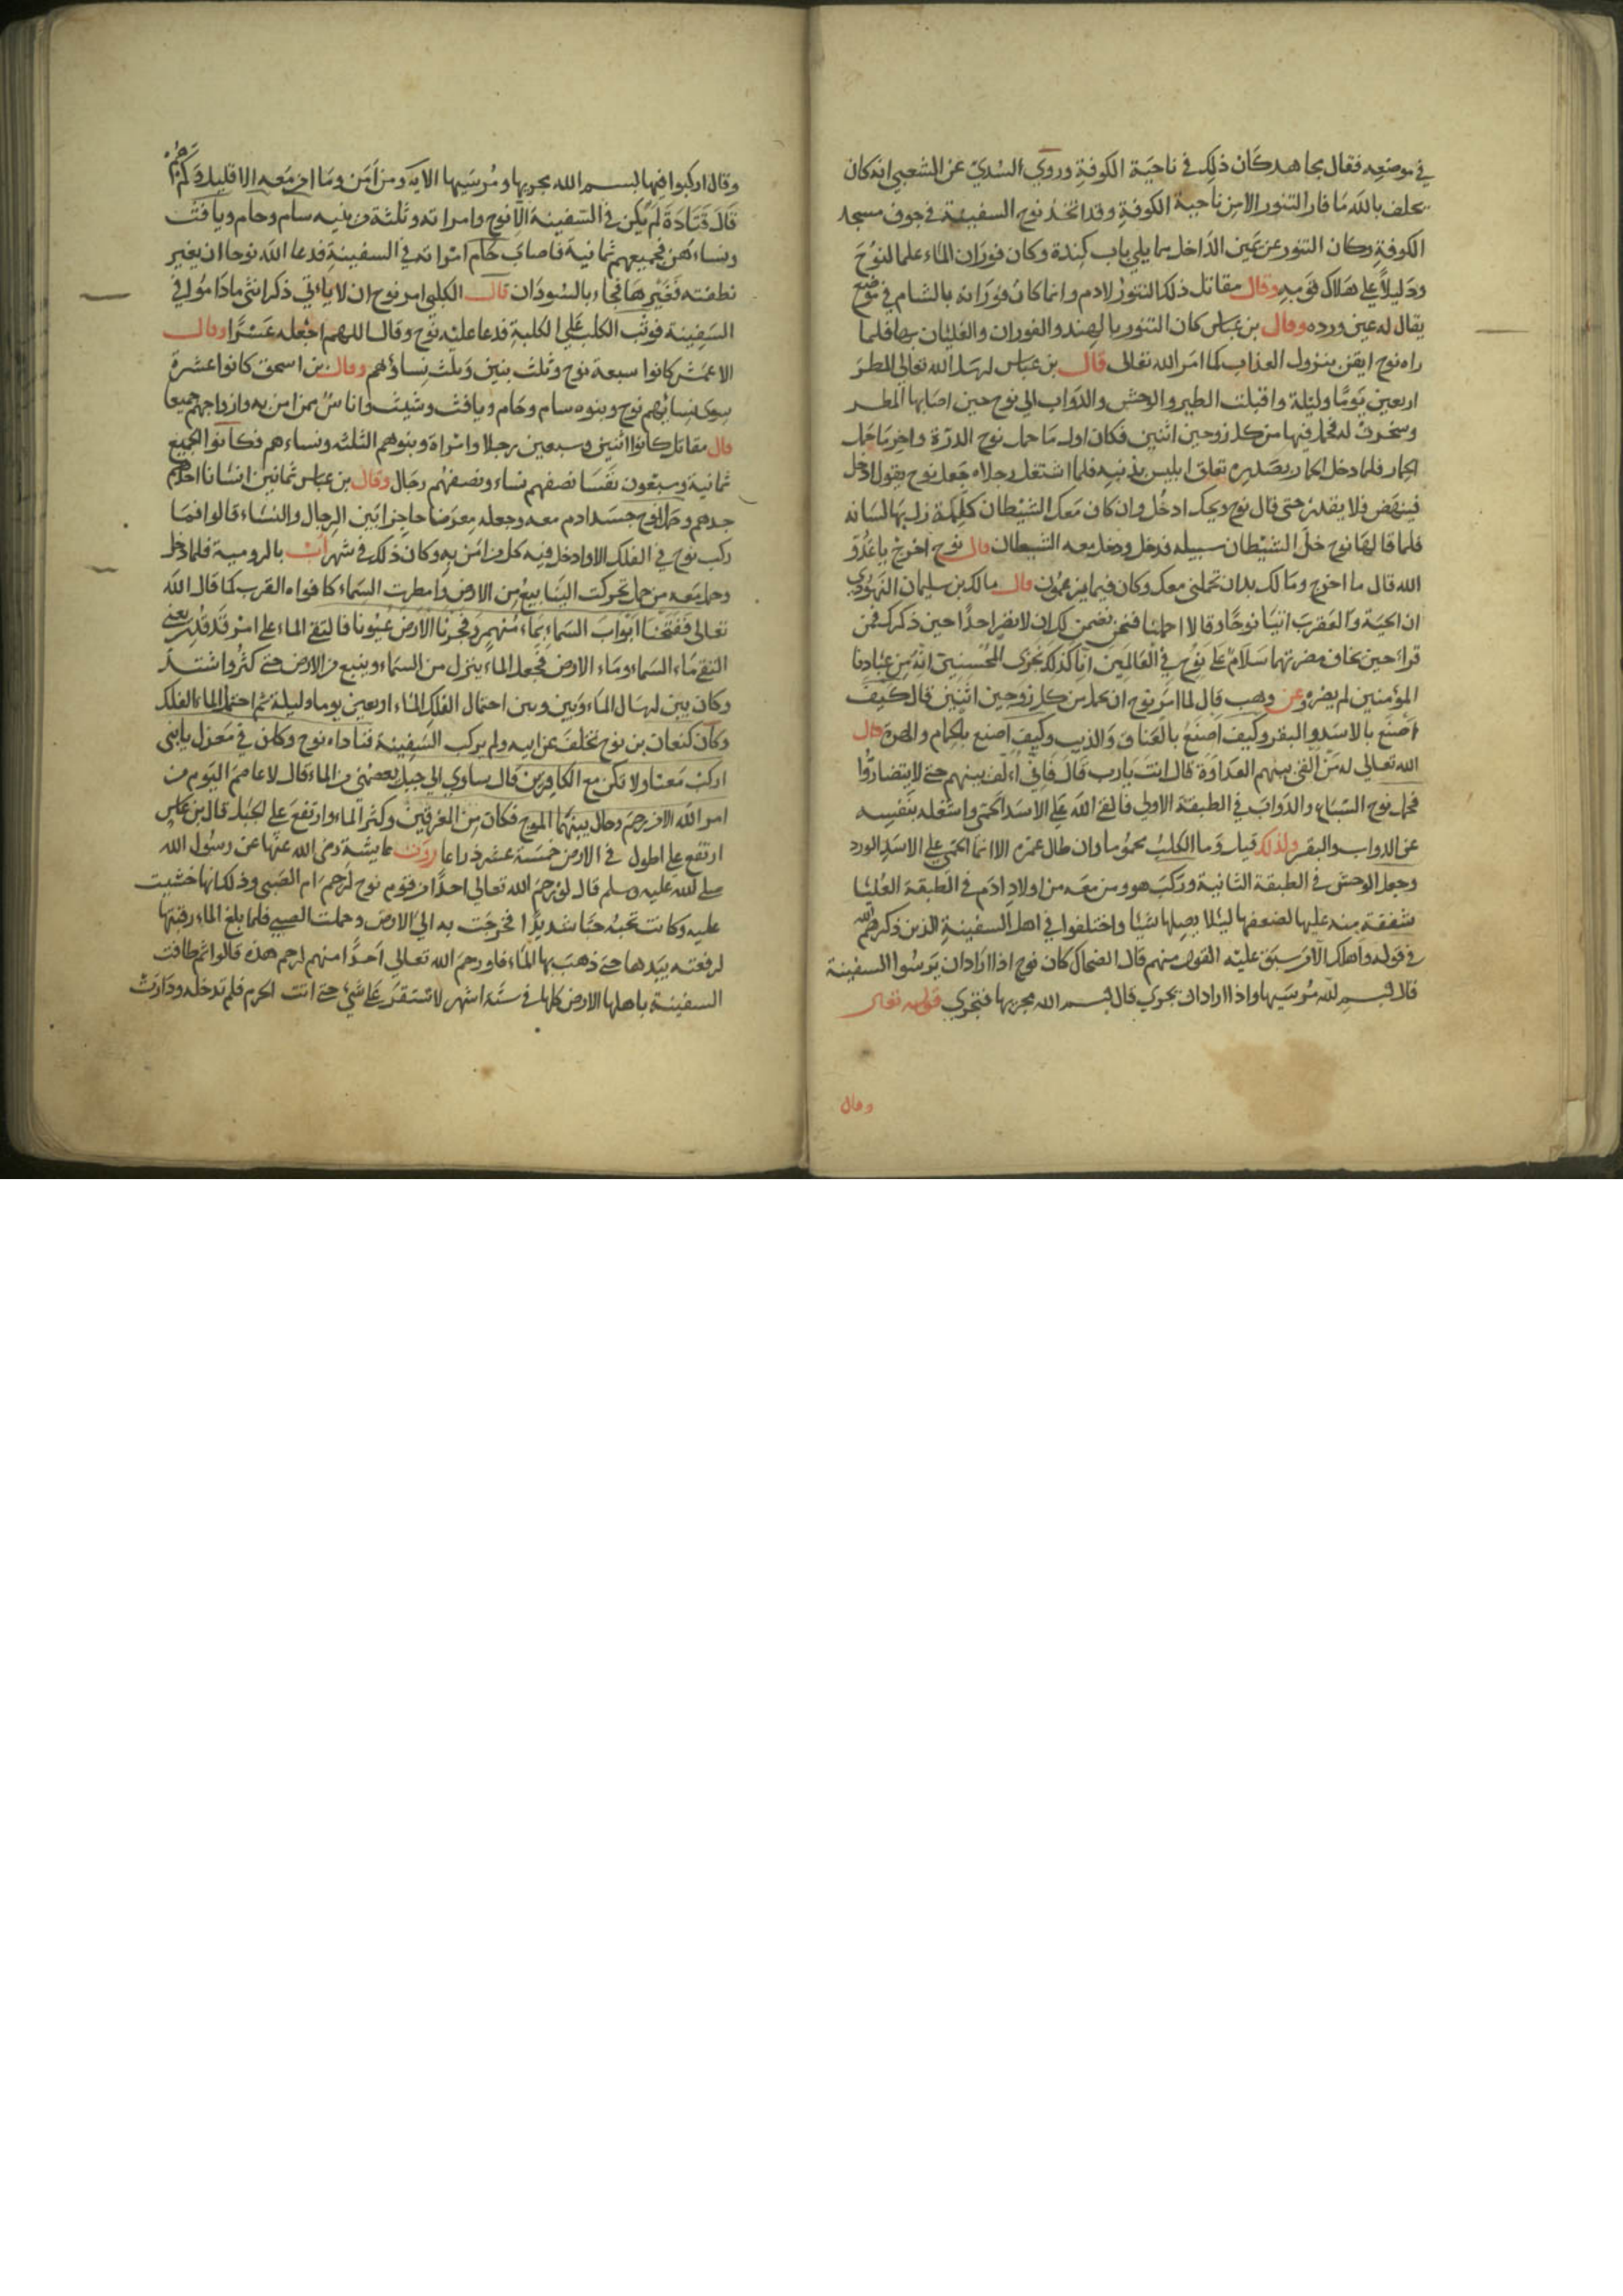 في موضعه فقال مجاهد كان ذلك في ناحية الكوفة وروي السدي عن الشعبي انه كان
يحلف بالله ما فار التنور الا من ناحية الكوفة وقد اتخذ نوح السفينة في جوف مسجد
الكوفة وكان التنور عن يمين الداخل مما يلي باب كندة وكان فوران الماء علما لنوح
ودليلا علي هلاك قومه وقال مقاتل ذلك التنور لادم وانما كان فورانه بالشام في موضع
يقال له عين ورده وقال بن عباس كان التنور بالهند والفوران والغليان بها فلما
راه نوح ايقن بنزول العذاب كما امر الله تعالى قال بن عباس ارسل الله تعالي المطر
اربعين يوما وليلة واقبلت الطير والوحش والدواب الي نوح حين اصابها المطر
وسخرت له فحمل فيها من كل زوجين اثنين فكان اول ما حمل نوح الدرة واخر ما حمل
الحمار فلما دخل الحمار بصدره تعلق ابليس بذنبه فلما اشتغل رجلاه جعل نوح يقول ادخل
فينهض فلا يقدر حتي قال نوح ويحك ادخل وان كان معك الشيطان كلمة زل بها لسانه
فلما قالها نوح خلي الشيطان سبيله فدخل ودخل معه الشيطان قال نوح اخرج يا عدو
الله قال ما اخرج وما لك بد ان تحملني معك وكان فيما يزعمون قال مالك بن سليمان النهروي
ان الحية والعقرب اتيا نوحا وقالا احملنا فنحن نضمن لك ان لا نضر احدا حين ذكرك فمن
قرا حين يخاف مضرتهما سلام علي نوح في العالمين انا كذلك نجزي المحسنين انه من عبادنا
المؤمنين لم يضره وعن وهب قال لما امر نوح ان يحمل من كل زوجين اثنين قال كيف
اصنع بالاسد والبقر وكيف اصنع بالعناق والذيب وكيف اصنع بالحمام والهرة قال
الله تعالي له من القي بينهم العداوة قال انت يارب قال فاني اءلف بينهم حتي لا يتضاروا
فحمل نوح السباع والدواب في الطبقة الاولي فالقي الله علي الاسد الحمي واشغله بنفسه
عن الدواب والبقر ولذلك قيل وما الكلب محموما وان طال عمره الا انما الحمي علي الاسد الورد
وجعل الوحش في الطبقة الثانية وركب هو ومن معه من اولاد ادم في الطبقة العليا
شفقة منه عليها لضعفها ليلا يصلها شيا واختلفوا في اهل السفينة الذين ذكرهم الله
في قوله واهلك الا من سبق عليه القول منهم قال الضحاك كان نوح اذا اراد ان يرسوا السفينة
قال بسم الله مرسيها واذا اراد ان تجري قال بسم الله مجريها فتجري قوله تعالى
وقال
وقال اركبوا فيها بسم الله مجريها ومرسيها الاية ومن آمن وما امن معه الا قليل وكم
قال قتادة لم يكن في السفينة الا نوح وامراته وثلثة من بنيه سام وحام ويافث
ونساءهن فجميعهم ثمانية فاصاب حام امراته في السفينة فدعا الله نوحا ان يغير
نطفته فغيرها فجاء بالسودان قال الكلبي امر نوح ان لا ياتي ذكر انثي ما داموا في
السفينة فوثب الكلب علي الكلبة فدعا عليه نوح وقال اللهم اجعله عسرا وقال
الاعمش كانوا سبعة نوح وثلث بنين وثلث نساؤهم وقال بن اسحق كانوا عشرة
سوى نسائهم نوح وبنوه سام وحام ويافث وشيث واناس ممن امن به وازواجهم جميعا
قال مقاتل كانوا اثنين وسبعين رجلا وامراة وبنوهم الثلثه ونساءهم فكانوا الجميع
ثمانية وسبعون نفسا نصفهم نساء ونصفهم رجال وقال بن عباس ثمانين انسانا احدهم
جرهم وحمل نوح جسد ادم معه وجعله معرضا حاجزا بين الرجال والنساء قالوا فما
ركب نوح في الفلك الا وادخل فيه كل من امن به وكان ذلك في شهر آب بالرومية فلما دخل
وحمل معه من حمل تحركت الينابيع من الارض وامطرت السماء كافواه القرب كما قال الله
تعالى ففتحنا ابواب السماء بماء منهمر وفجرنا الارض عيونا فالتقي الماء علي امر قد قدر يعني
التقي ماء السماء وماء الارض فجعل الماء ينزل من السماء وينبع من الارض حتي كثر واشتد
وكان بين ارسال الماء وبين احتمال الفلك الماء اربعين يوما وليلة ثم احتمل الماء الفلك
وكان كنعان بن نوح تخلف عن ابيه ولم يركب السفينة فناداه نوح وكان في معزل يا بني
اركب معنا ولا تكن مع الكافرين قال ساوي الي جبل يعصمني من الماء قال لا عاصم اليوم من
امر الله الا من رحم وحال بينهما الموج فكان من المغرقين وكثر الماء وارتفع علي الجبل قال بن عباس
ارتفع علي اطول في الارض خمسة عشر ذراعا روت عايشة رضي الله عنها عن رسول الله
صلي الله عليه وسلم قال لو رحم الله تعالي احدا من قوم نوح لرحم ام الصبي وذلك انها خشيت
عليه وكانت تحبه حبا شديدا فخرجت به الي الارض وحملت الصبي فلما بلغ الماء رقبتها
رفعته بيدها حتي ذهب بها الماء فلو رحم الله تعالي احدا منهم لرحم هذه قالوا ثم طافت
السفينة باهلها الارض كلها في ستة اشهر لا تستقر علي شي حتي اتت الحرم فلم تدخله ودارت